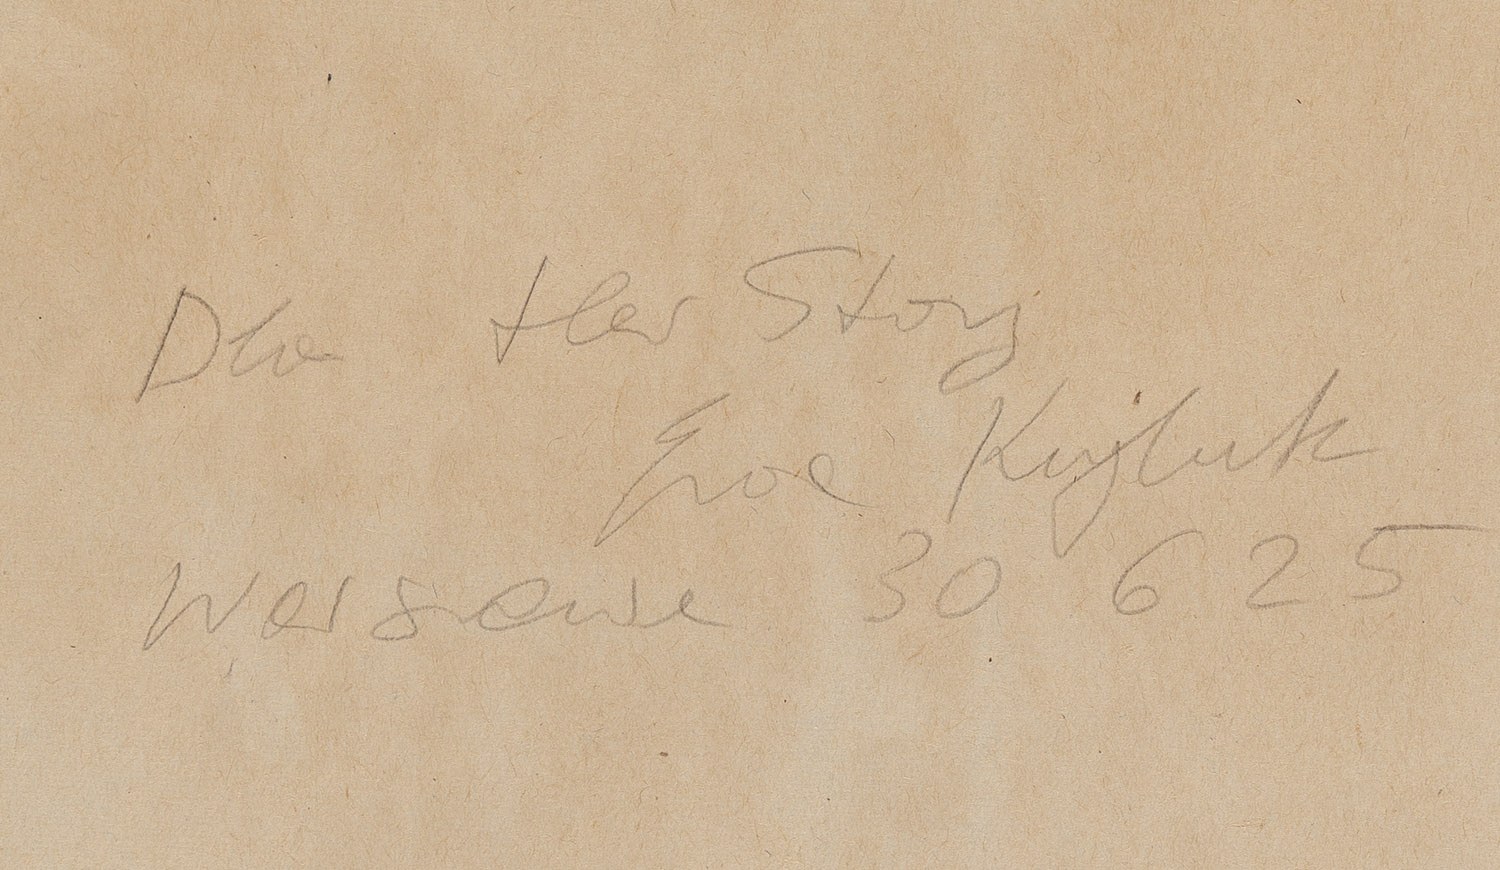 Dla Her Story
Ewa Kuryluk
Warszawa 30 6 25